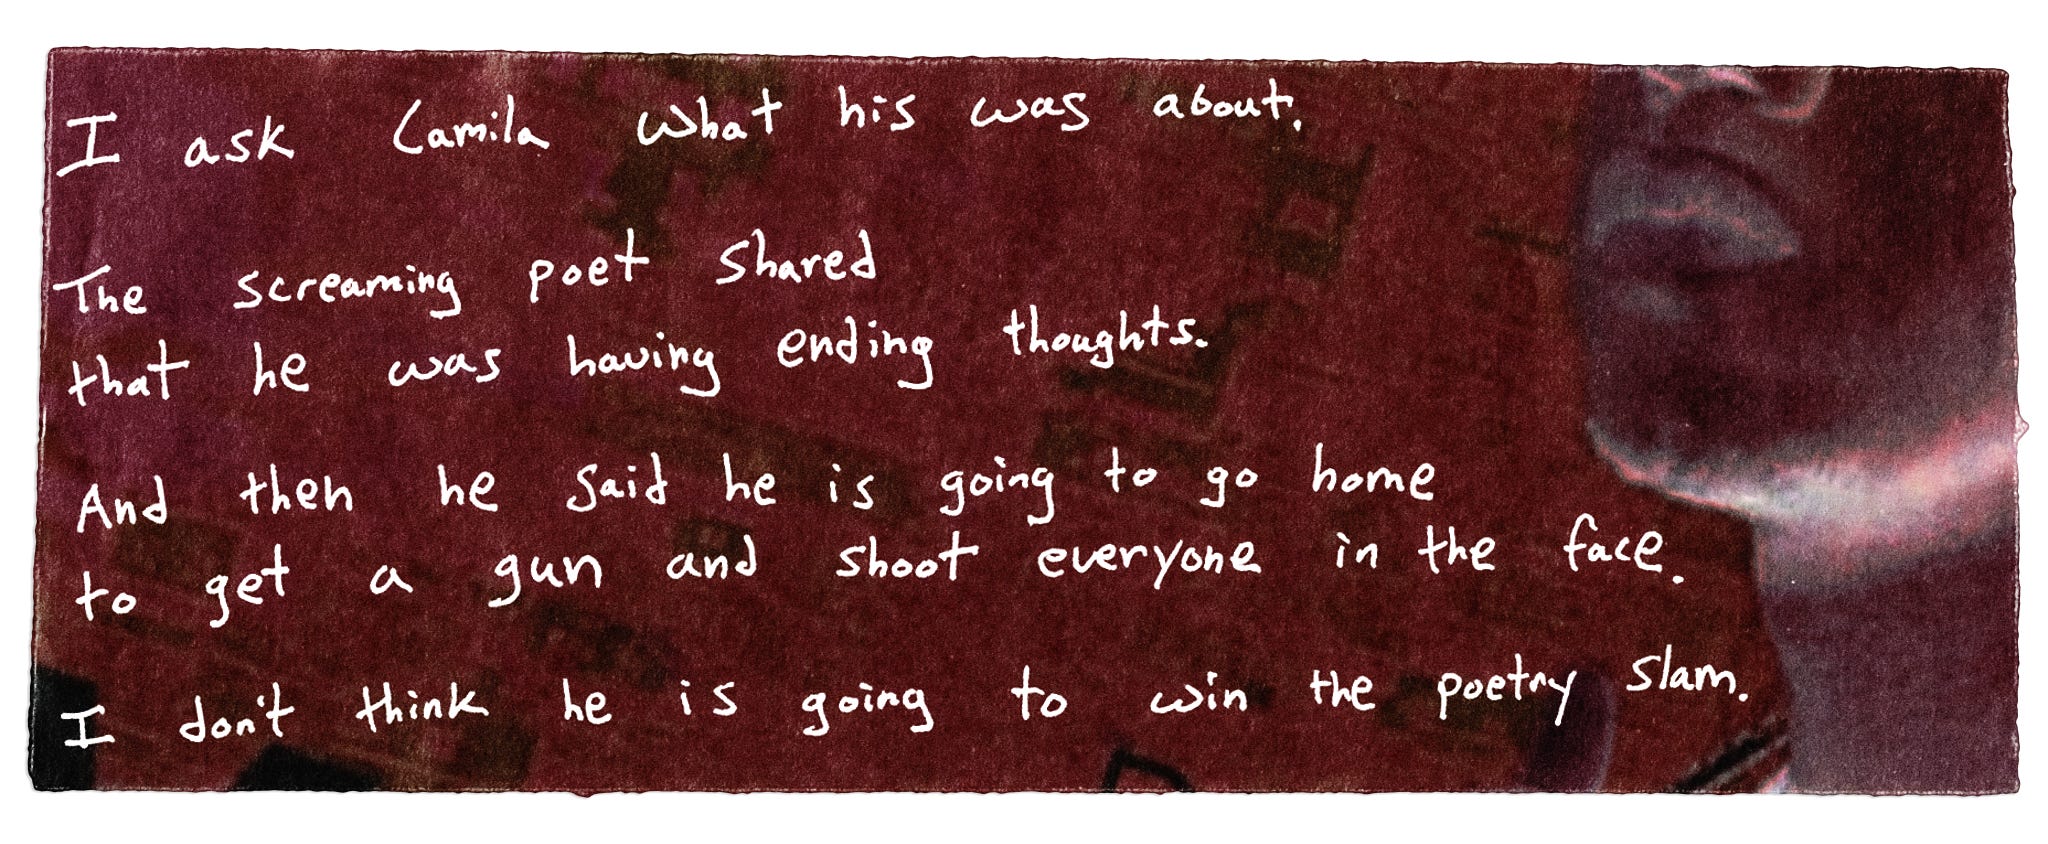 I ask Camila what his was about.
The screaming poet shared
that he was having ending thoughts.
And then he said he is going to go home
to get a gun and shoot everyone in the face.
I don't think he is going to win the poetry slam.